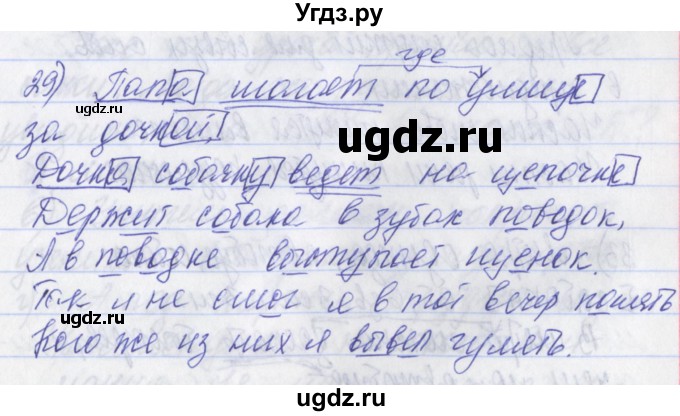 Угдз.ру
где
29) Папа шагает по улице
за дочкой,
Дочка собачку ведет на цепочке
Держит собака в зубах поводок,
А в поводке выступает щенок.
Так я не смог я в тот вечер понять
Кого же из них я вывел гулять.
ugdz.ru
ugdz.ru
ugdz.ru
ugdz.ru
ugdz.ru